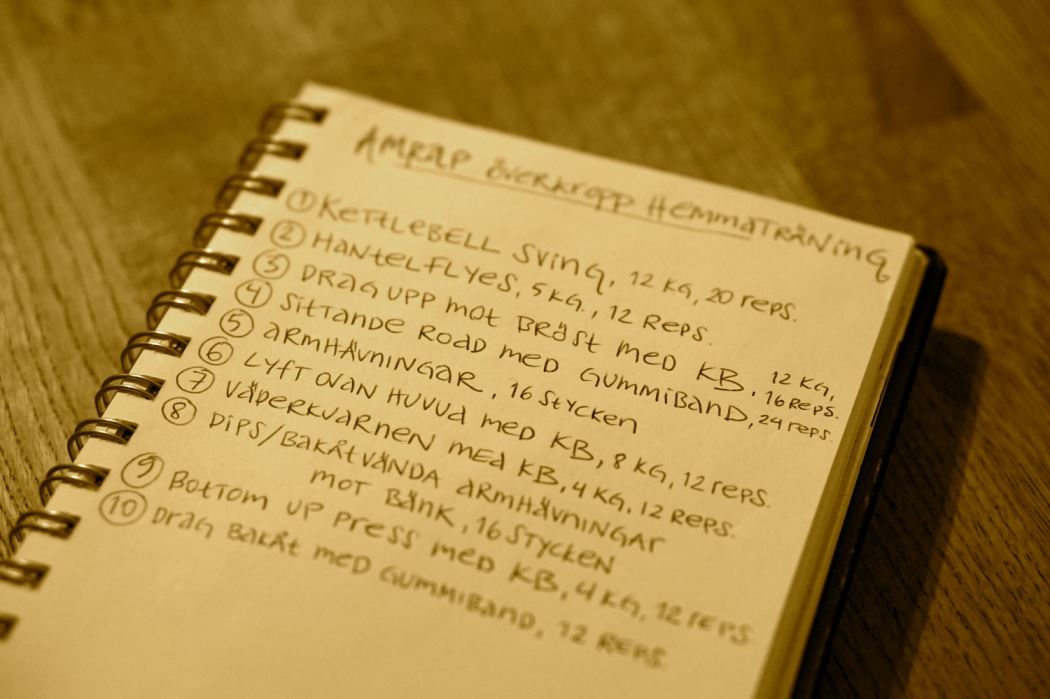 AMRAP överkropp HemmaTRÄNing
① KETTLEBELL SVING, 12 KG, 20 reps.
② HANTELFLYES, 5 KG., 12 REPS.
③ DRAG UPP MOT BRÖST MED KB, 12 KG, 16 REPS.
④ SITTANDE RODD MED GUMMIBAND, 24 reps.
⑤ ARMHÄVNINGAR, 16 STYCKEN
⑥ LYFT OVAN HUVUD MED KB, 8 KG, 12 reps.
⑦ VÄDERKVARNEN MED KB, 4 KG, 12 REPS.
⑧ DIPS/BAKÅTVÄNDA ARMHÄVNINGAR
MOT BÄNK, 16 STYCKEN
⑨ BOTTOM UP PRESS MED KB, 4 KG, 12 REPS.
⑩ DRAG BAKÅT MED GUMMIBAND, 12 REPS.